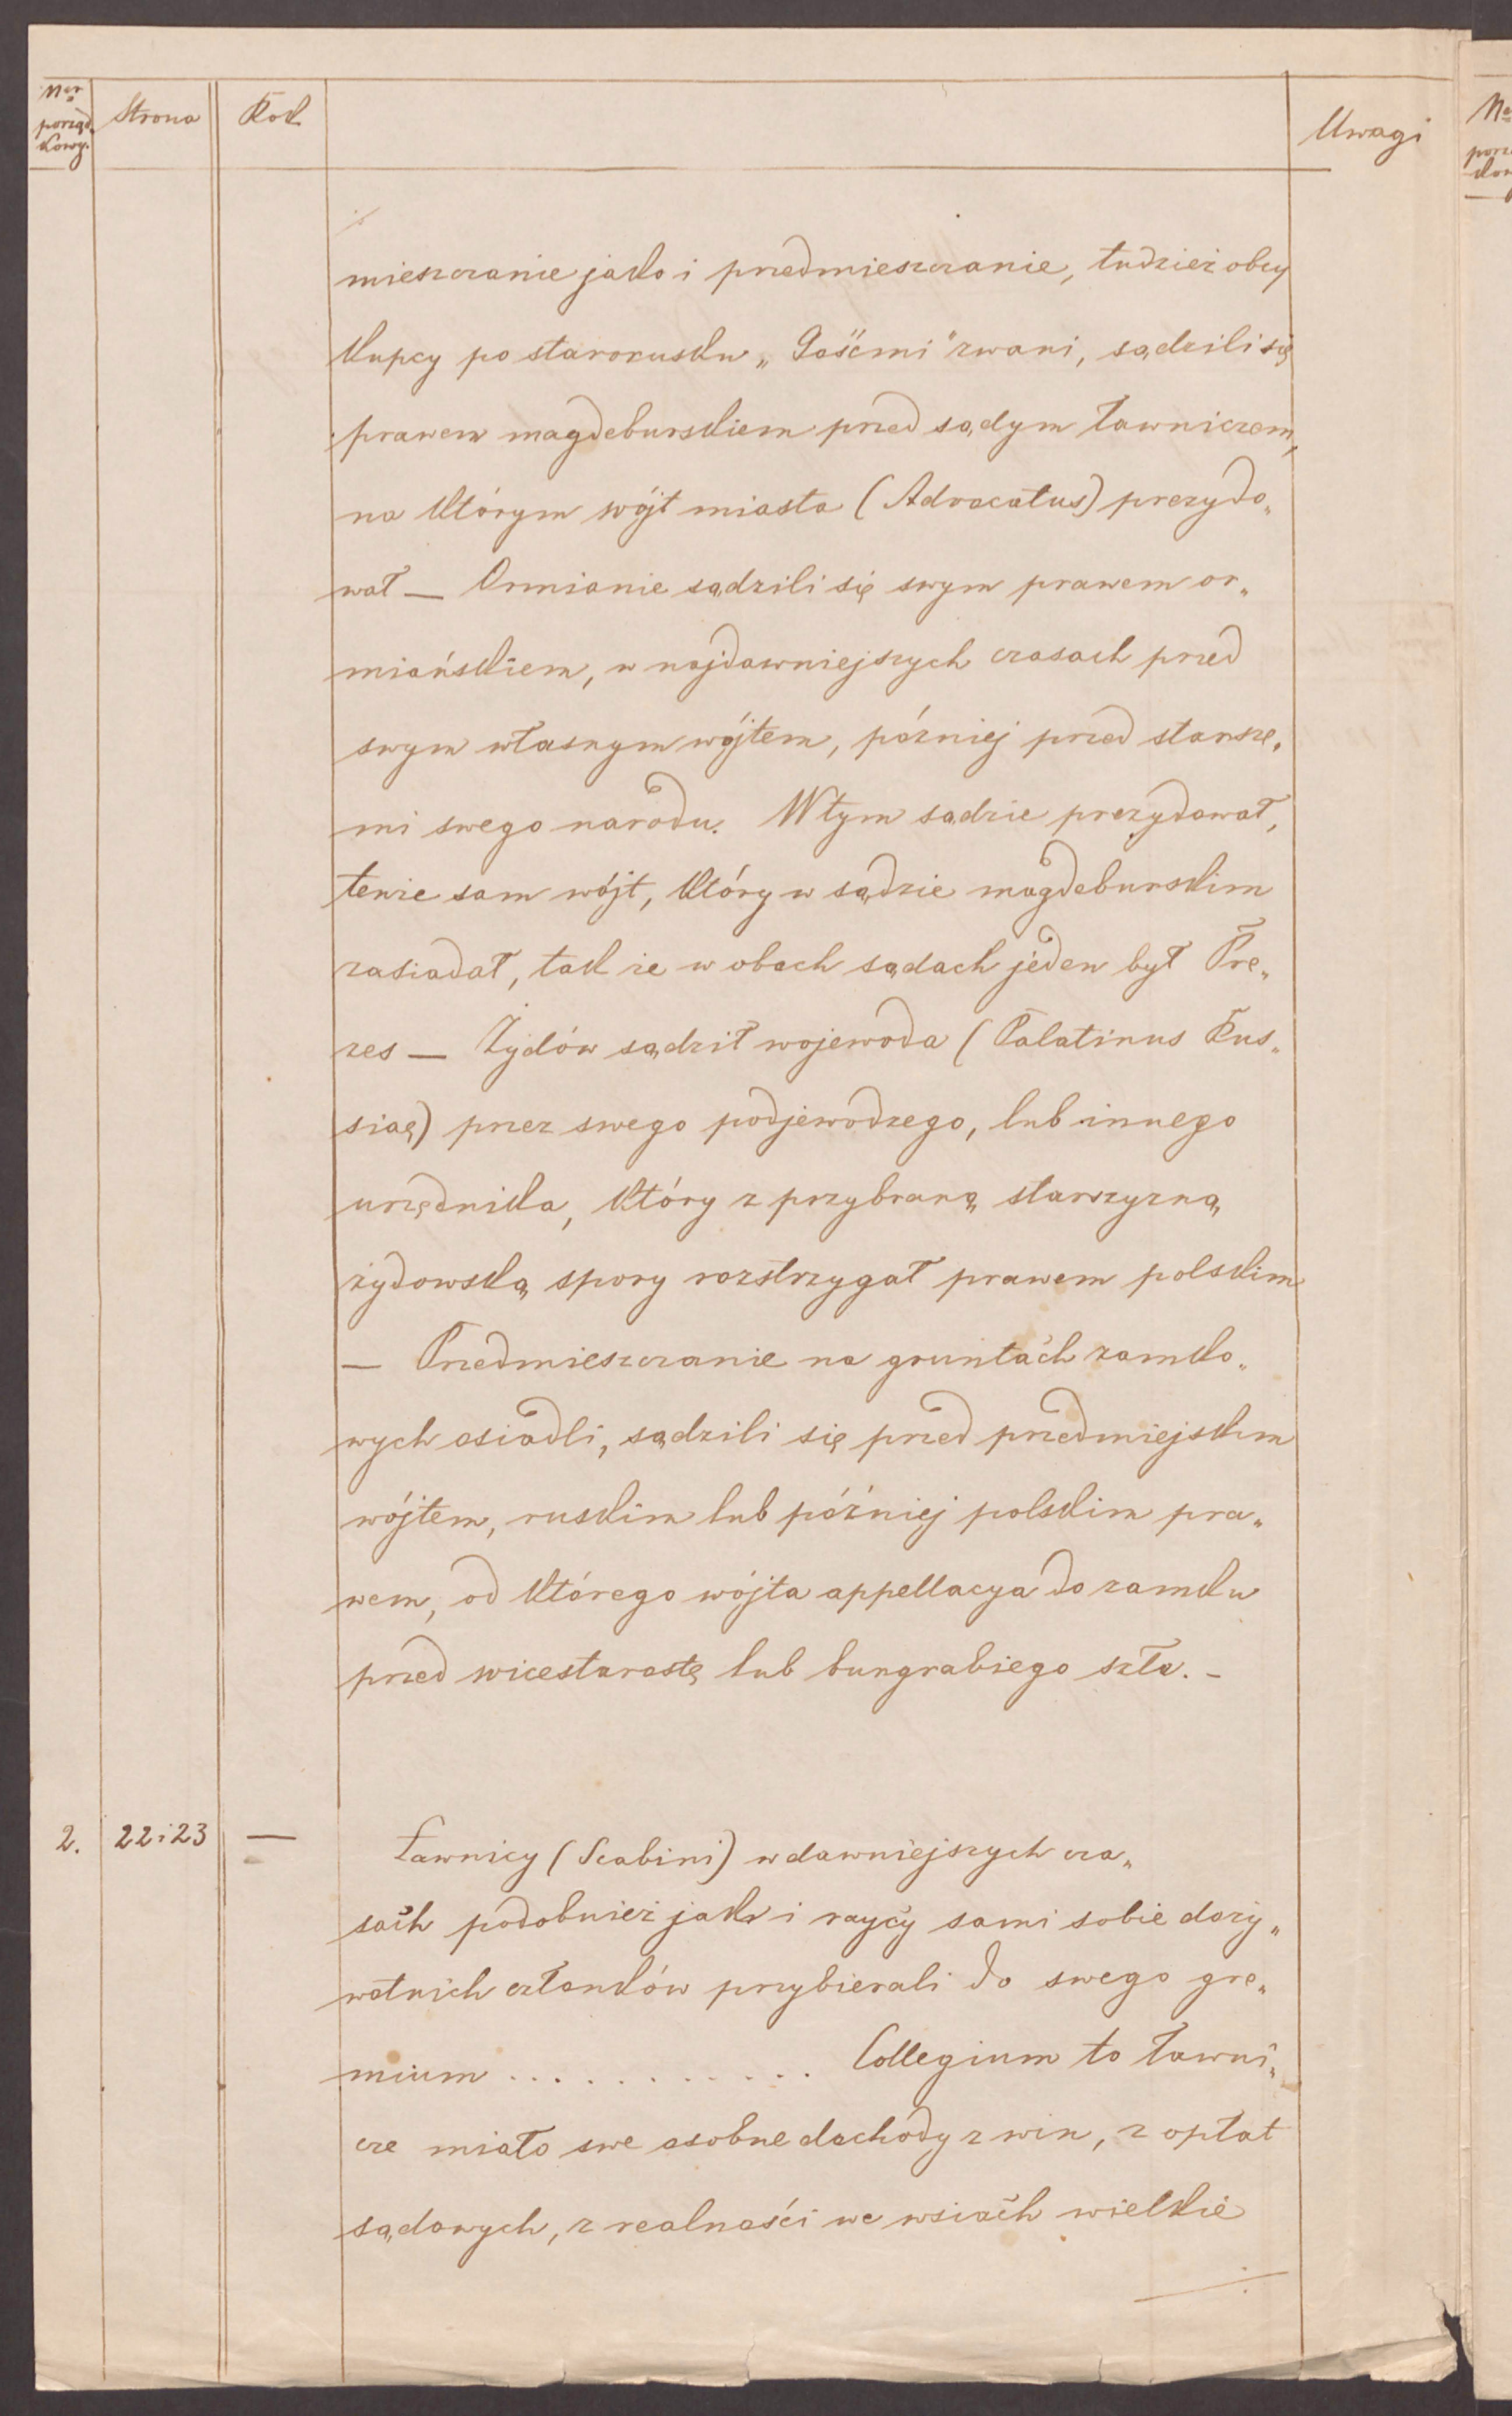 Ner porząd. kowy. Strona Rok Uwagi
mieszczanie jako i przedmieszczanie, tudzież obcy
kupcy po starorusku „Gośćmi” zwani, sądzili się
prawem magdeburskiem przed sądym ławniczem,
na którym wójt miasta (Advocatus) prezydo„
wał — Ormianie sądzili się swym prawem or„
miańskiem, w najdawniejszych czasach przed
swym własnym wójtem, później przed starsze„
mi swego narodu. W tym sądzie prezydował,
tenże sam wójt, który w sądzie magdeburskim
zasiadał, tak że w obach sądach jeden był Pre„
zes — Żydów sądził wojewoda (Palatinus Rus„
siae) przez swego podjewodzego, lub innego
urzędnika, który z przybraną starszyzną
żydowską spory rozstrzygał prawem polskim
— Przedmieszczanie na gruntach zamko„
wych osiadli, sądzili się przed przedmiejskim
wójtem, ruskim lub później polskim pra„
wem, od którego wójta appellacya do zamku
przed wicestarostę lub burgrabiego szła. –
2. 22 i 23 — Ławnicy (Scabini) w dawniejszych cza„
sach podobnież jak i raycy sami sobie doży„
wotnich członków przybierali do swego gre„
mium . . . . . . . . . . . . Collegium to ławni„
cze miało swe osobne dochody z win, z opłat
sądowych, z realności we wsiach wielkie
Ne
porzą
kow